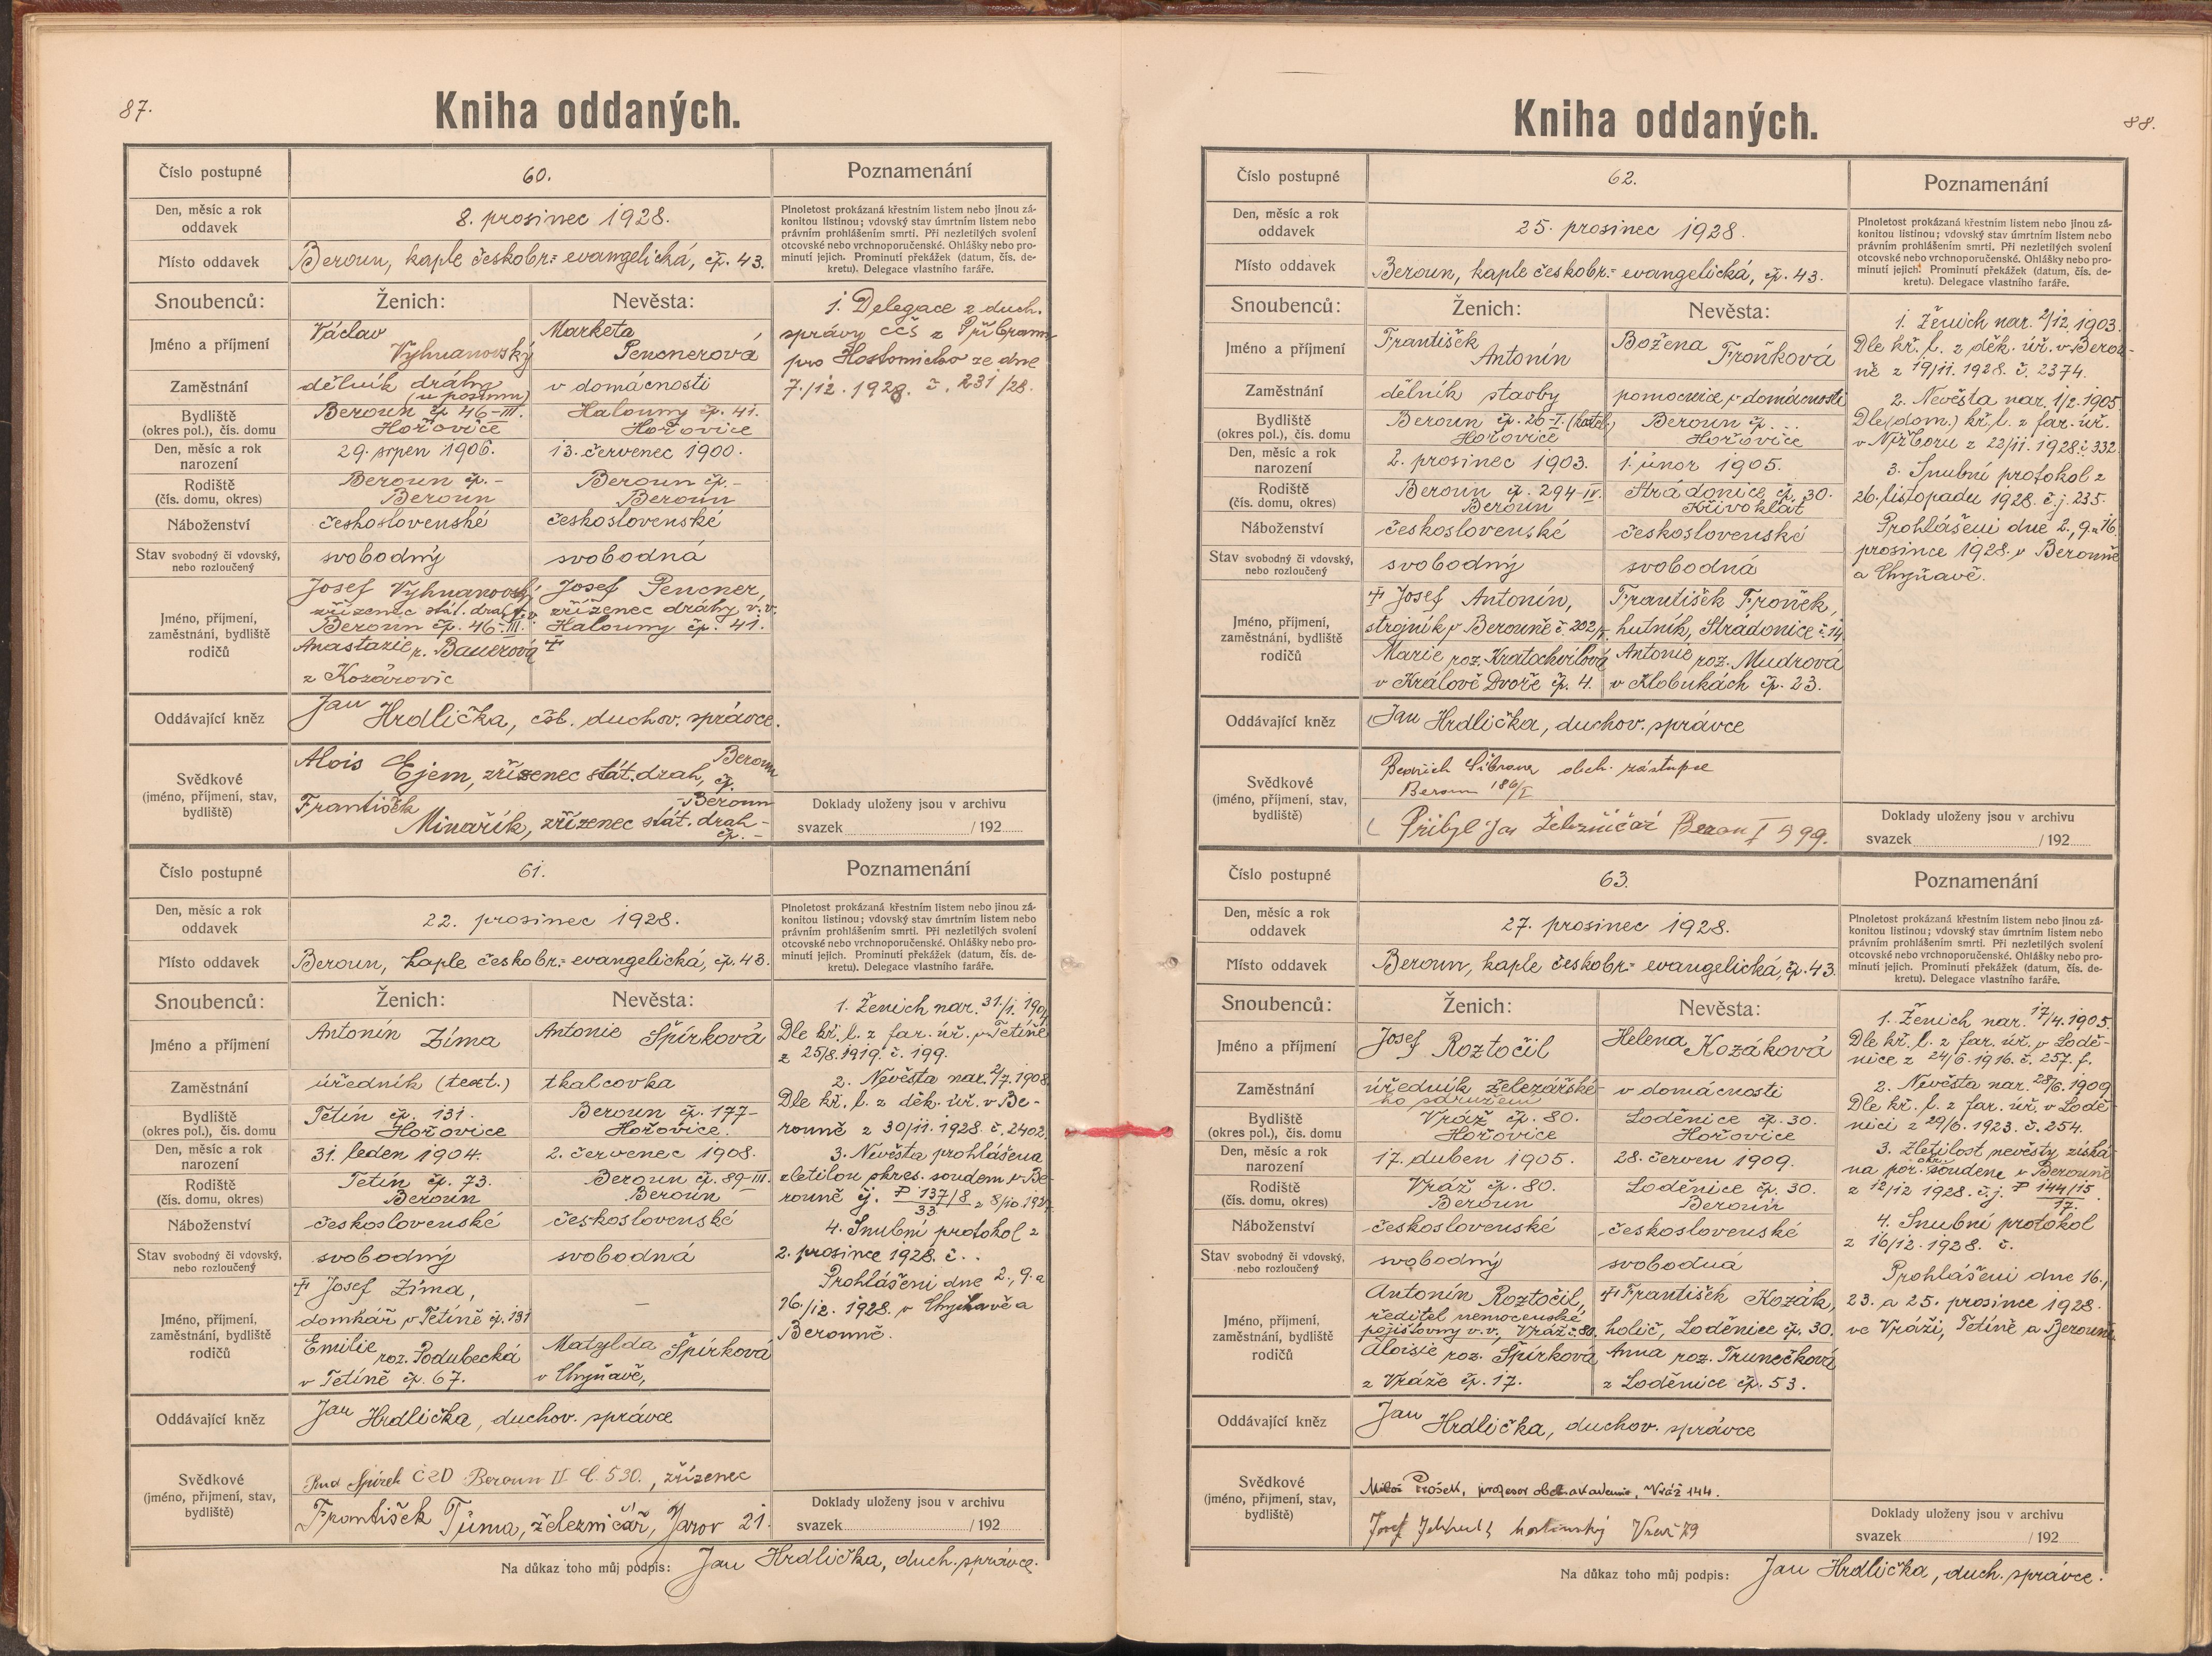 87.
Kniha oddaných.
Číslo postupné
60.
Poznamenání
Den, měsíc a rok
oddavek
8. prosinec 1928.
Plnoletost prokázaná křestním listem nebo jinou zá-
konitou listinou; vdovský stav úmrtním listem nebo
právním prohlášením smrti. Při nezletilých svolení
otcovské nebo vrchnoporučenské. Ohlášky nebo pro-
minutí jejich. Prominutí překážek (datum, čís. de-
kretu). Delegace vlastního faráře.
Místo oddavek
Beroun, kaple českobr.= evangelická, čp. 43.
Snoubenců:
Ženich:
Nevěsta:
Jméno a příjmení
Václav
Vyhnanovský
Marketa
Pencnerová
Zaměstnání
dělník dráhy
v domácnosti
Bydliště
(okres pol.), čís. domu
Beroun čp. 46-III.
Hořovice
Halouny čp. 41.
Hořovice
Den, měsíc a rok
narození
29. srpen 1906.
13. červenec 1900.
Rodiště
(čís. domu, okres)
Beroun čp. -
Beroun
Beroun čp. -
Beroun
Náboženství
československé
československé
Stav svobodný či vdovský,
nebo rozloučený
svobodný
svobodná
Jméno, příjmení,
zaměstnání, bydliště
rodičů
Josef Vyhnanovský
zřízenec stát. drah v.v.
Beroun čp. 46-III.
Anastazie r. Bauerová
z Kozárovic
Josef Pencner,
zřízenec dráhy v.v.
Halouny čp. 41.
‡
1. Delegace z duch.
správy CČS z Příbrami
pro Hostomicko ze dne
7./12. 1928. č. 231/28.
Oddávající kněz
Jan Hrdlička, čsl. duchov. správce.
Svědkové
(jméno, příjmení, stav,
bydliště)
Alois Ejem, zřízenec stát. drah, Beroun čp.
František Minařík, zřízenec stát. drah - Beroun čp. -
Doklady uloženy jsou v archivu
svazek / 192
Číslo postupné
61.
Poznamenání
Den, měsíc a rok
oddavek
22. prosinec 1928.
Plnoletost prokázaná křestním listem nebo jinou zá-
konitou listinou; vdovský stav úmrtním listem nebo
právním prohlášením smrti. Při nezletilých svolení
otcovské nebo vrchnoporučenské. Ohlášky nebo pro-
minutí jejich. Prominutí překážek (datum, čís. de-
kretu). Delegace vlastního faráře.
Místo oddavek
Beroun, kaple českobr.= evangelická, čp. 43.
Snoubenců:
Ženich:
Nevěsta:
Jméno a příjmení
Antonín Zíma
Antonie Špírková
Zaměstnání
úředník (text.)
tkalcovka
Bydliště
(okres pol.), čís. domu
Tetín čp. 131.
Hořovice
Beroun čp. 177-
Hořovice.
Den, měsíc a rok
narození
31. leden 1904.
2. červenec 1908.
Rodiště
(čís. domu, okres)
Tetín čp. 73.
Beroun
Beroun čp. 89-III.
Beroun
Náboženství
československé
československé
Stav svobodný či vdovský,
nebo rozloučený
svobodný
svobodná
Jméno, příjmení,
zaměstnání, bydliště
rodičů
‡ Josef Zíma,
domkář v Tetíně čp. 131
Emilie roz. Podubecká
v Tetíně čp. 67.
—
Matylda Špírková
v Chyňavě,
1. Ženich nar. 31./1. 1904
Dle kř. l. z far. úř. v Tetíně
z 25/8. 1919. č. 199.
2. Nevěsta nar. 2/7. 1908.
Dle kř. l. z děk. úř. v Be-
rouně z 30/11. 1928. č. 2402.
3. Nevěsta prohlášena
zletilou okres. soudem v Be-
rouně čj. P 137/8 / 33 z 8/10. 1928.
4. Snubní protokol z
2. prosince 1928. č. . .
Prohlášení dne 2., 9. a
16./12. 1928. v Chyňavě a
Berouně.
Oddávající kněz
Jan Hrdlička, duchov. správce
Svědkové
(jméno, příjmení, stav,
bydliště)
Špírek ČSD Beroun II. č. 530., zřízenec
František Tůma, železničář, Jarov 21.
Doklady uloženy jsou v archivu
svazek / 192
Na důkaz toho můj podpis: Jan Hrdlička, duch. správce.
88.
Kniha oddaných.
Číslo postupné
62.
Poznamenání
Den, měsíc a rok
oddavek
25. prosinec 1928.
Plnoletost prokázaná křestním listem nebo jinou zá-
konitou listinou; vdovský stav úmrtním listem nebo
právním prohlášením smrti. Při nezletilých svolení
otcovské nebo vrchnoporučenské. Ohlášky nebo pro-
minutí jejich. Prominutí překážek (datum, čís. de-
kretu). Delegace vlastního faráře.
Místo oddavek
Beroun, kaple českobr.= evangelická, čp. 43.
Snoubenců:
Ženich:
Nevěsta:
Jméno a příjmení
František
Antonín
Božena
Froňková
Zaměstnání
dělník stavby
pomocnice v domácnosti
Bydliště
(okres pol.), čís. domu
Beroun čp. 26-I.
Hořovice
Beroun čp. ...
Hořovice
Den, měsíc a rok
narození
2. prosinec 1903.
1. únor 1905.
Rodiště
(čís. domu, okres)
Beroun čp. 294-IV.
Beroun
Strádonice čp. 30.
Křivoklát
Náboženství
československé
československé
Stav svobodný či vdovský,
nebo rozloučený
svobodný
svobodná
Jméno, příjmení,
zaměstnání, bydliště
rodičů
‡ Josef Antonín,
strojník v Berouně č. 202/I.
Marie roz. Kratochvílová
v Králově Dvoře čp. 4.
František Froněk,
hutník, Strádonice č. 14
Antonie roz. Mudrová
v Klobukách čp. 23.
1. Ženich nar. 2/12. 1903.
Dle kř. l. z děk. úř. v Berou-
ně z 19/11. 1928. č. 2374.
2. Nevěsta nar. 1/2. 1905
Dle (dom.) kř. l. z far. úř.
v Nižboru z 22/11. 1928. č. 332
3. Snubní protokol z
26. listopadu 1928. č. j. 235.
Prohlášení dne 2., 9. a 16.
prosince 1928. v Berouně
a Chyňavě.
Oddávající kněz
Jan Hrdlička, duchov. správce
Svědkové
(jméno, příjmení, stav,
bydliště)
obch. zástupce
Beroun 186/I
Přibyl Jar Železničář Beroun I 499.
Doklady uloženy jsou v archivu
svazek / 192
Číslo postupné
63.
Poznamenání
Den, měsíc a rok
oddavek
27. prosinec 1928.
Plnoletost prokázaná křestním listem nebo jinou zá-
konitou listinou; vdovský stav úmrtním listem nebo
právním prohlášením smrti. Při nezletilých svolení
otcovské nebo vrchnoporučenské. Ohlášky nebo pro-
minutí jejich. Prominutí překážek (datum, čís. de-
kretu). Delegace vlastního faráře.
Místo oddavek
Beroun, kaple českobr.= evangelická, čp. 43.
Snoubenců:
Ženich:
Nevěsta:
Jméno a příjmení
Josef Roztočil
Helena Kozáková
Zaměstnání
úředník železářské-
ho sdružení
v domácnosti
Bydliště
(okres pol.), čís. domu
Vráž čp. 80.
Hořovice
Loděnice čp. 30.
Hořovice
Den, měsíc a rok
narození
17. duben 1905.
28. červen 1909.
Rodiště
(čís. domu, okres)
Vráž čp. 80.
Beroun
Loděnice čp. 30.
Beroun
Náboženství
československé
československé
Stav svobodný či vdovský,
nebo rozloučený
svobodný
svobodná
Jméno, příjmení,
zaměstnání, bydliště
rodičů
Antonín Roztočil,
ředitel nemocenské
pojišťovny v.v., Vráž č. 80.
Aloisie roz. Špírková
z Vráže čp. 17.
‡ František Kozák,
holič, Loděnice čp. 30.
Anna roz. Trunečková
z Loděnice čp. 53.
1. Ženich nar. 17/4. 1905.
Dle kř. l. z far. úř. v Lodě-
nice z 24/6. 1916. č. 257. f.
2. Nevěsta nar. 28/6. 1909
Dle kř. l. z far. úř. v Lodě-
nici z 29/6. 1923. č. 254.
3. Zletilost nevěsty získá-
na poř. okr. soudem v Berouně
z 12/12 1928. č.j. P 144/15 / 17.
4. Snubní protokol
z 16/12. 1928. č.
Prohlášení dne 16.,
23. a 25. prosince 1928.
ve Vráži, Tetíně a Berouně.
Oddávající kněz
Jan Hrdlička, duchov. správce
Svědkové
(jméno, příjmení, stav,
bydliště)
Miloš Prošek, profesor obch. akademie, Vráž 144.
Josef hostinský Vráž 79
Doklady uloženy jsou v archivu
svazek / 192
Na důkaz toho můj podpis: Jan Hrdlička, duch. správce.